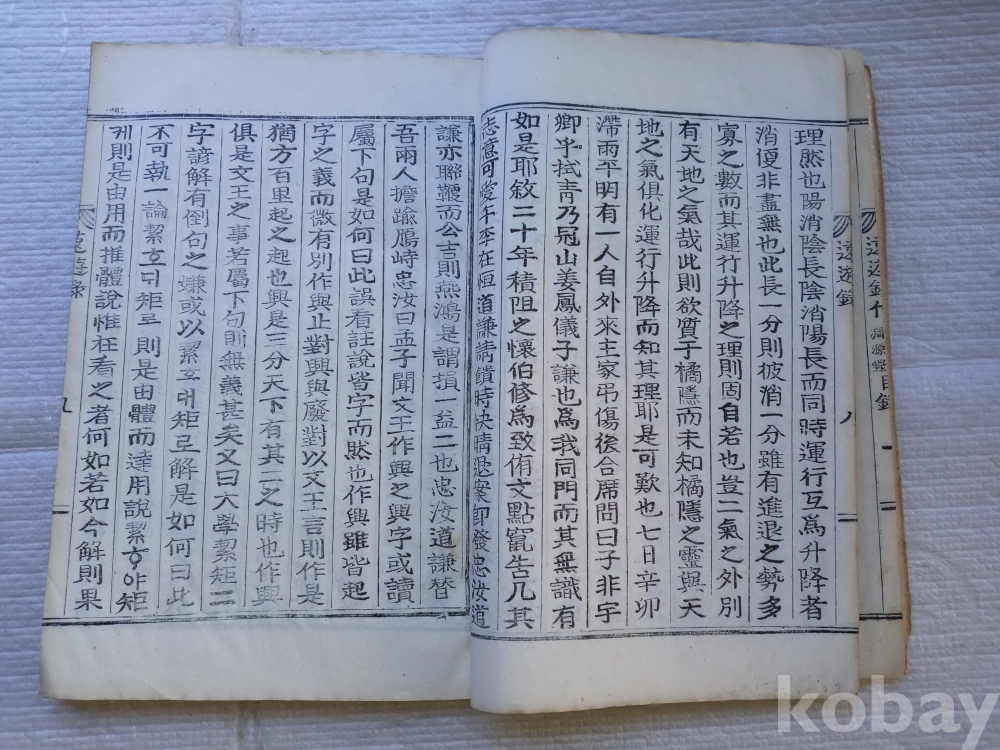 遠遊錄
目錄
一
遠遊錄
八
理然也陽消陰長陰消陽長而同時運行互為升降者
消優非盡無也此長一分則彼消一分雖有進退之勢多
寡之數而其運行升降之理則固自若也豈二氣之外別
有天地之氣哉此則欲質于橘隱而未知橘隱之靈與天
地之氣俱化運行升降而知其理耶是可歎也七日辛卯
滯雨平明有一人自外來主家弔傷後合席問曰子非宇
卿乎拭靑乃冠山姜鳳儀子謙也為我同門而其無識有
如是耶敘二十年積阻之懷伯修為致侑文點竄告几其
意可愛午李在恒道謙請饋時快晴退案卽發忠汝道
謙亦聯鞭而公吉則燕鴻是謂損一益二也忠汝道謙替
吾兩人擔踰鴈峙忠汝曰孟子聞文王作興之興字或讀
屬下句是如何曰此誤看註說皆字而然也作興雖皆起
字之義而微有別作與止對興與廢對以文王言則作是
猶方百里起之起也興是三分天下有其二之時也作興
俱是文王之事若屬下句則無義甚矣又曰大學絜矩二
字諺解有倒句之嫌或以絜호대矩로解是如何曰此
不可執一論絜호디矩로則是宙體而達用說絜호야矩
게則是由用而推體說惟在看之者何如若如今解則果
遠遊錄
九
kobay